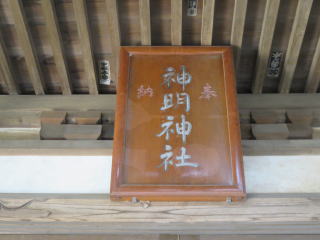 奉納
神明神社